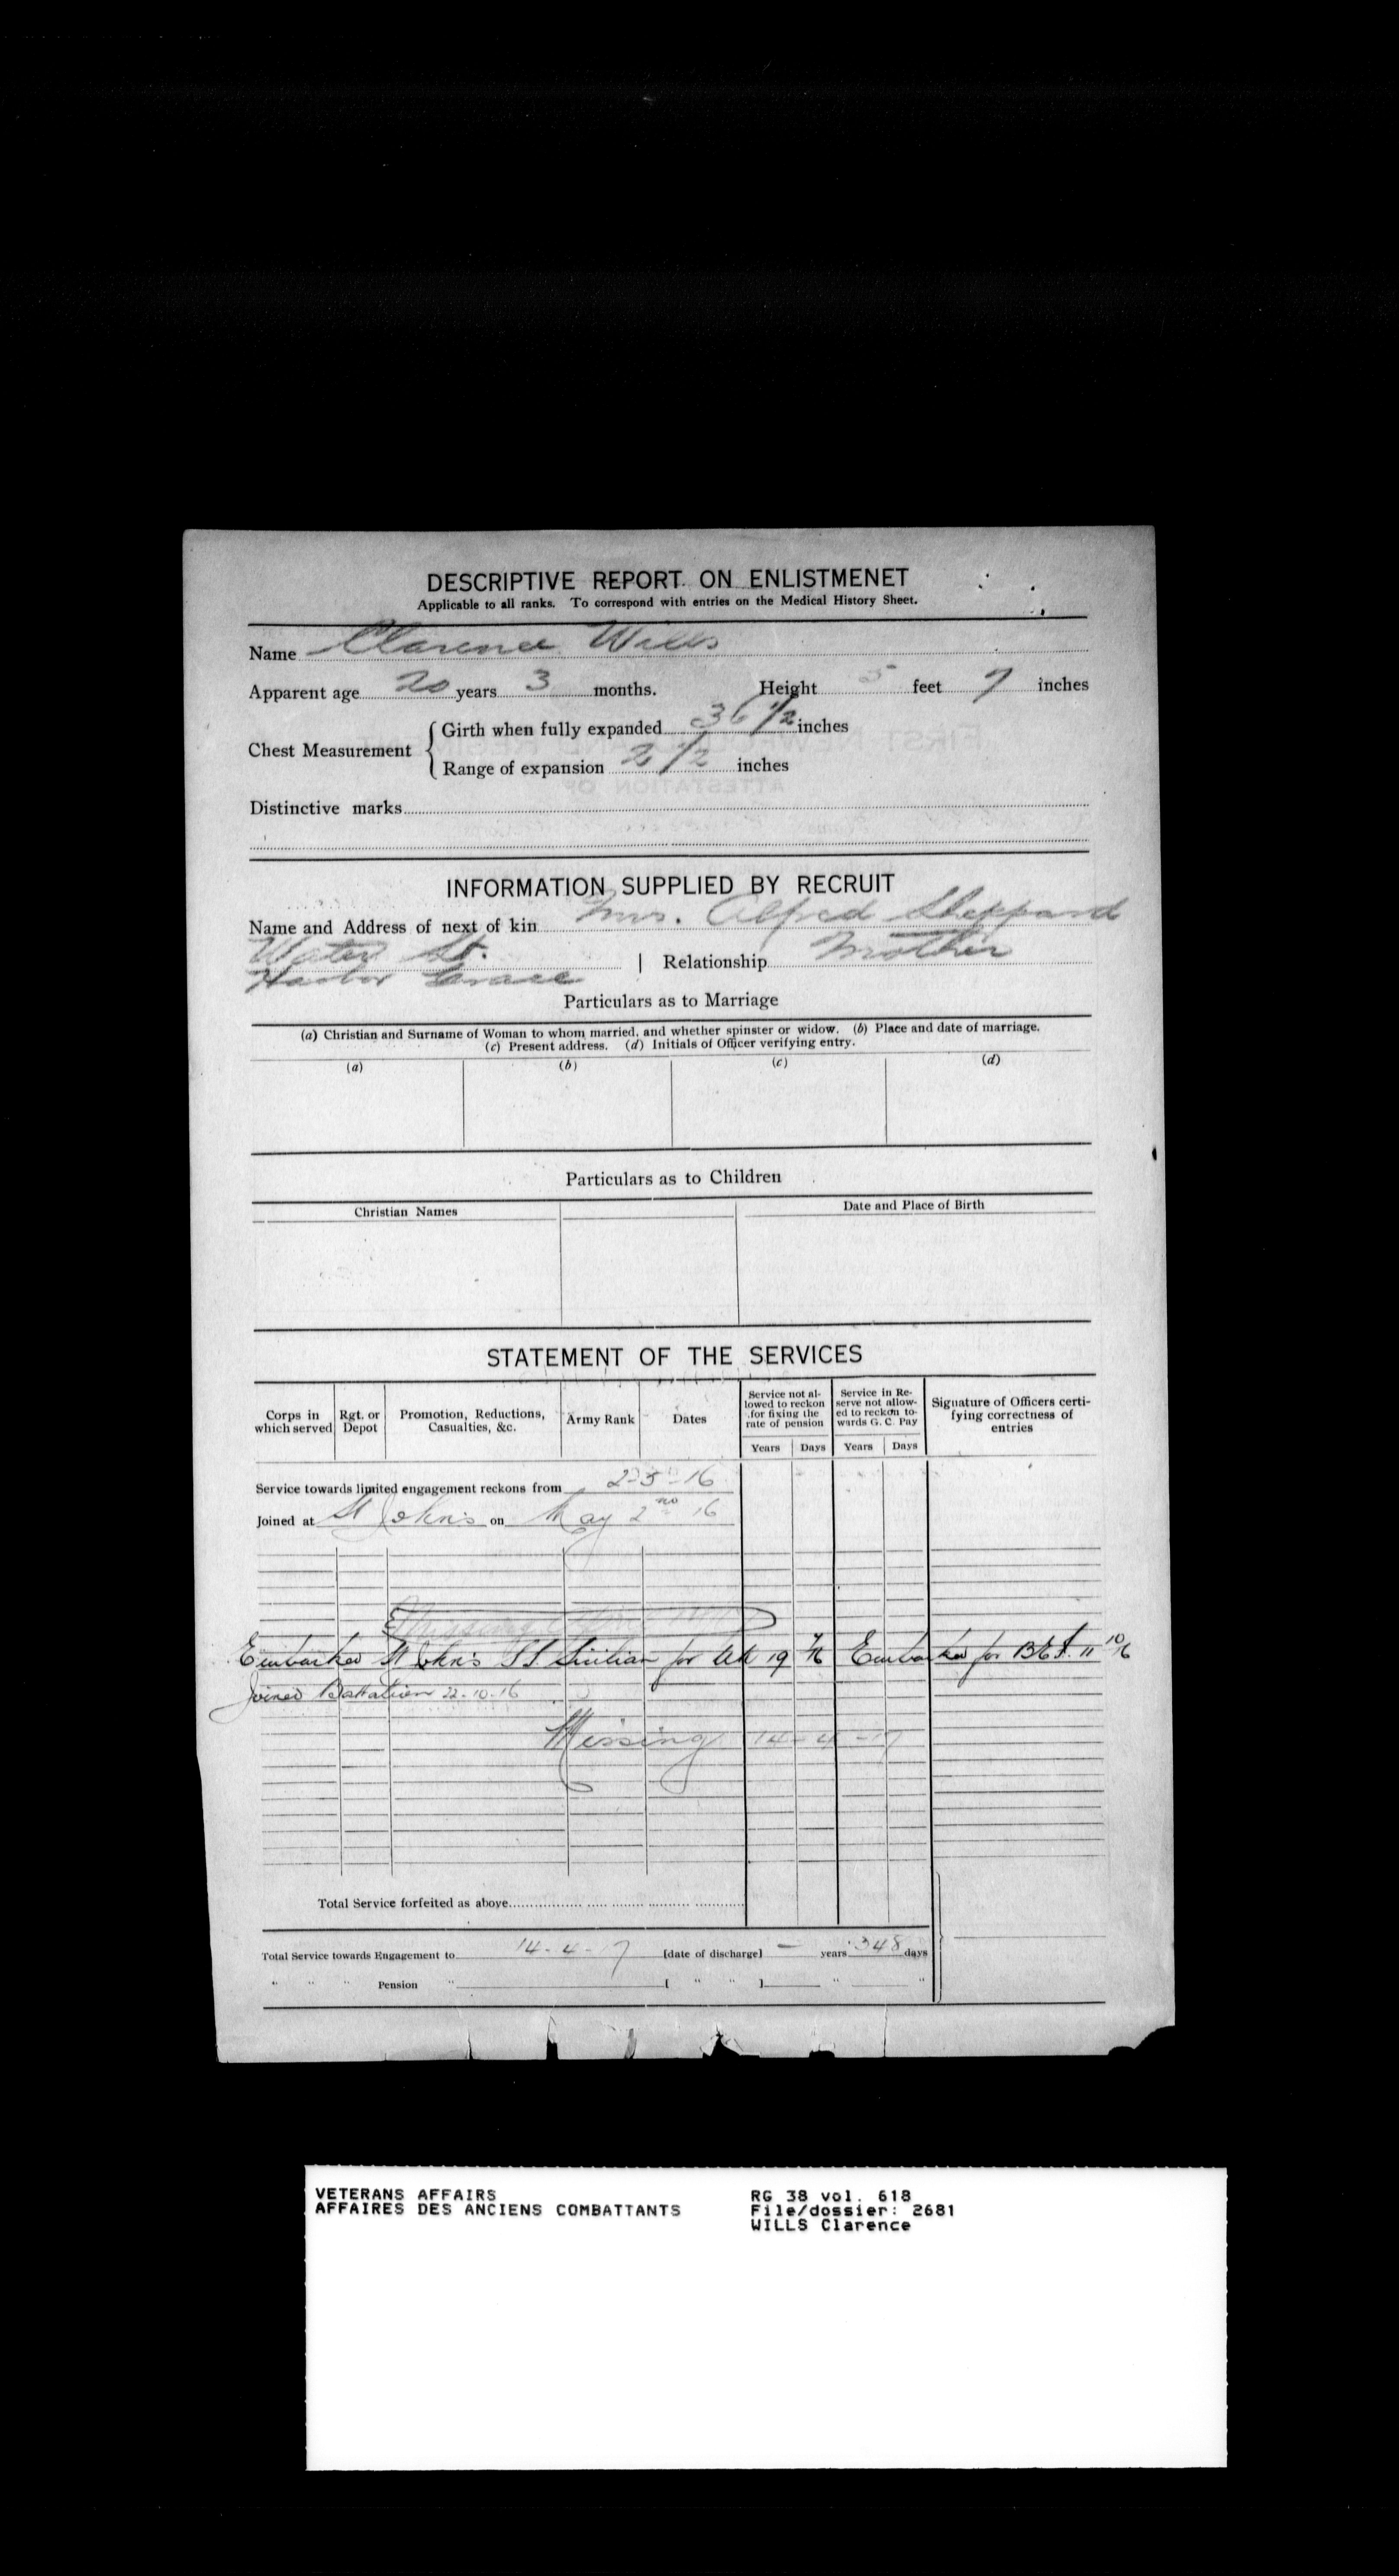 DESCRIPTIVE REPORT ON ENLISTMENET
Applicable to all ranks. To correspond with entries on the Medical History Sheet.
Name Clarence Wills
Apparent age 20 years 3 months. Height 5 feet 7 inches
Chest Measurement { Girth when fully expanded 36 1/2 inches
Range of expansion 2 1/2 inches
Distinctive marks
INFORMATION SUPPLIED BY RECRUIT
Name and Address of next of kin Mrs. Alfred Sheppard
Water St. | Relationship Mother
Harbor Grace
Particulars as to Marriage
(a) Christian and Surname of Woman to whom married, and whether spinster or widow. (b) Place and date of marriage.
(c) Present address. (d) Initials of Officer verifying entry.
(a) (b) (c) (d)
Particulars as to Children
Christian Names Date and Place of Birth
STATEMENT OF THE SERVICES
Corps in which served Rgt. or Depot Promotion, Reductions, Casualties, &c. Army Rank Dates Service not allowed to reckon for fixing the rate of pension Service in Reserve not allowed to reckon towards G. C. Pay Signature of Officers certifying correctness of entries
Years Days Years Days
Service towards limited engagement reckons from 2-5-16
Joined at St John's on May 2nd 16
Missing
Embarked St John's S.S. Sicilian for UK 19 7/16 Embarked for B.E.F. 11 10/16
Joined Battalion 22.10.16
Missing 14-4-17
Total Service forfeited as above
Total Service towards Engagement to 14-4-17 [date of discharge] — years 348 days
" " " Pension " [ " " ] " "
VETERANS AFFAIRS RG 38 vol. 618
AFFAIRES DES ANCIENS COMBATTANTS File/dossier: 2681
WILLS Clarence